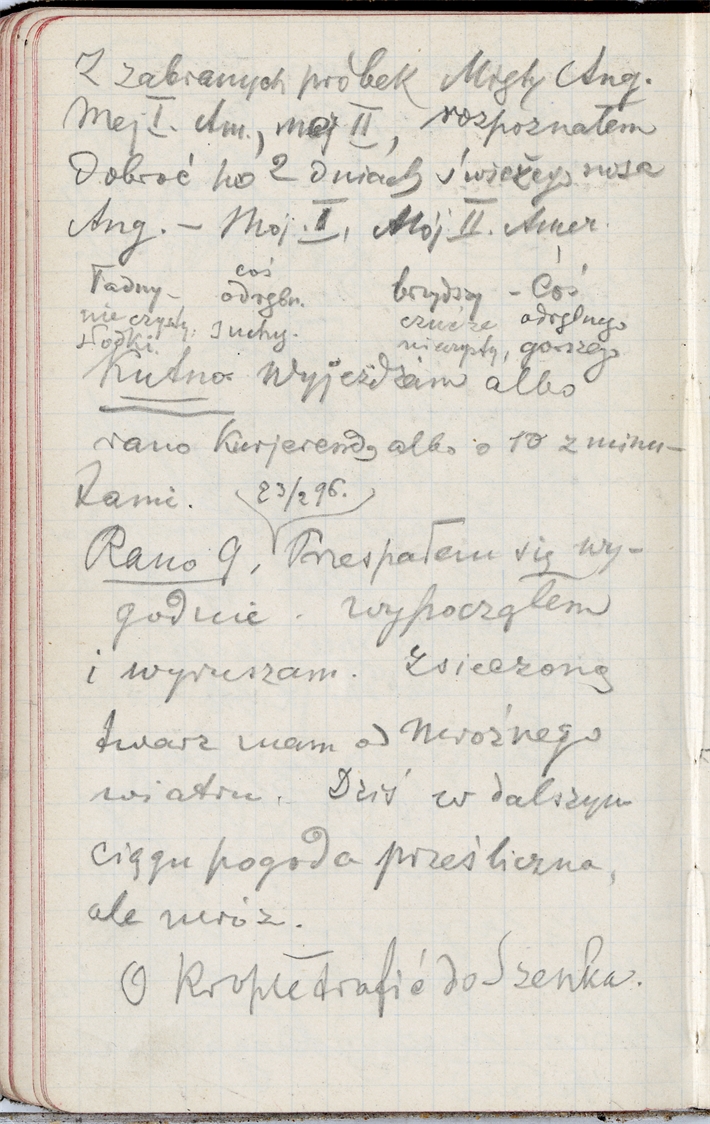 Z zabranych próbek Migły Ang.
Mej I. Am., mej II, rozpoznałem
Dobroć po 2 dniach świeżego nosa
Ang. – Mój. I, Mój II. Amer.
Ładny – coś brzydszy – Coś
nieczysty, odrębn. czuć że odrębnego
słodki. suchy. nieczysty, gorszego
Kutno Wyjeżdżam albo
rano Kurjerem, albo o 10 z minu-
tami. 23/2 96.
Rano 9, Przespałem się wy-
godnie. wypocząłem
i wyruszam. Zsieczoną
twarz mam od mroźnego
wiatru. Dziś w dalszym
ciągu pogoda prześliczna,
ale mróz.
O Krople trafić do Szenka.